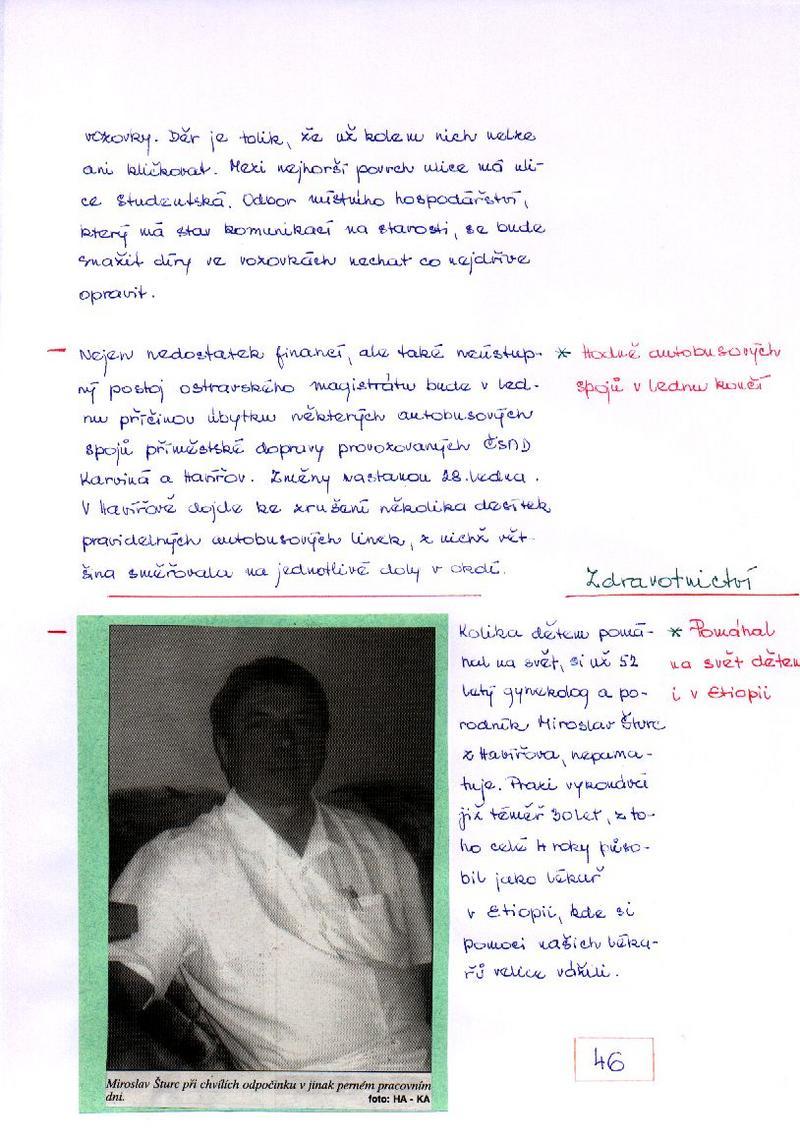 vozovky. Děr je tolik, že už kolem nich nelze
ani kličkovat. Mezi nejhorší povrch ulice má uli-
ce Studentská. Odbor místního hospodářství,
který má stav komunikací na starosti, se bude
snažit díry ve vozovkách nechat co nejdříve
opravit.
– Nejen nedostatek financí, ale také neústup-
ný postoj ostravského magistrátu bude v led-
nu příčinou úbytku některých autobusových
spojů příměstské dopravy provozovaných ČSAD
Karviná a Havířov. Změny nastanou 28. ledna.
V Havířově dojde ke zrušení několika desítek
pravidelných autobusových linek, z nichž vět-
šina směřovala na jednotlivé doly v okolí.
* Hodně autobusových
spojů v lednu končí
Zdravotnictví
– Kolika dětem pomá-
hal na svět, si už 52
letý gynekolog a po-
rodník Miroslav Šturc
z Havířova, nepama-
tuje. Praxi vykonává
již téměř 30 let, z to-
ho celé 4 roky půso-
bil jako lékař
v Etiopii, kde si
pomoci našich léka-
řů velice vážili.
* Pomáhal
na svět dětem
i v Etiopii
Miroslav Šturc při chvílích odpočinku v jinak perném pracovním
dni.
foto: HA - KA
46